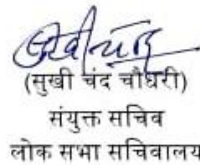 (सुखी चंद चौधरी)
संयुक्त सचिव
लोक सभा सचिवालय